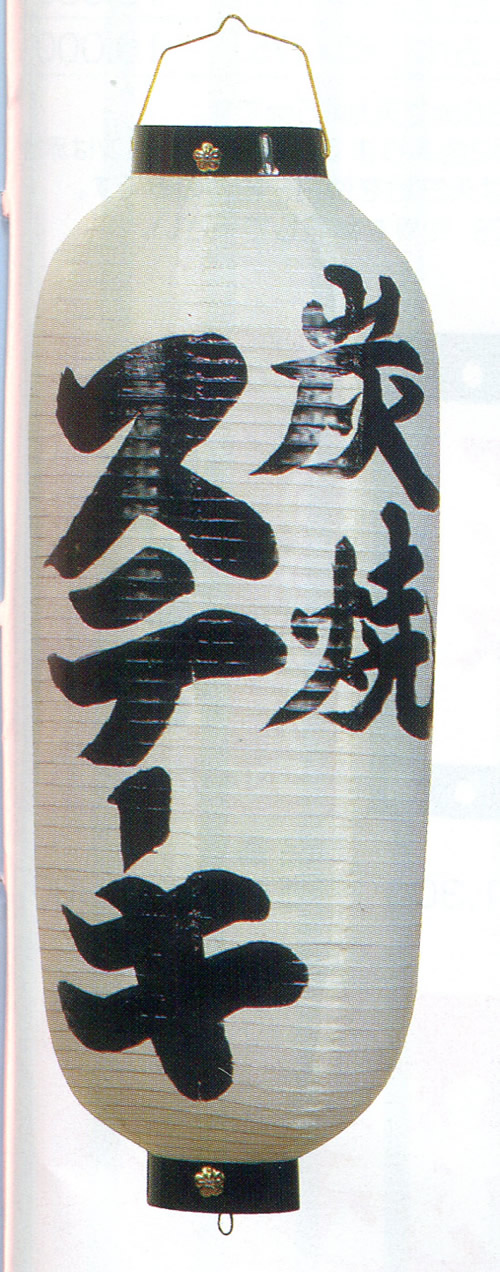 炭焼
ステーキ